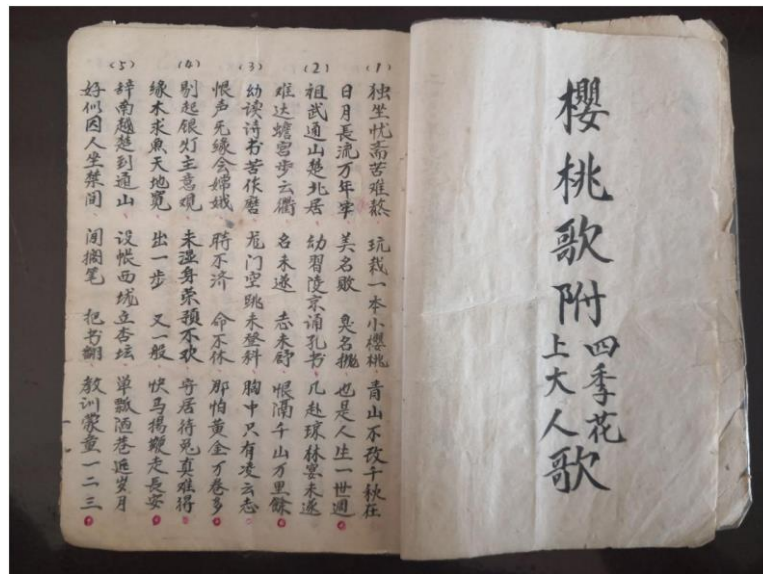 櫻桃歌附
四季花
上大人歌
(1) 独坐忧斋苦难熬 玩栽一本小櫻桃 青山不改千秋在
日月長流万年牢 美名敗 臭名拋 也是人生一世週
(2) 祖武通山楚北居 幼習陵京诵孔书 几赴琼林宴未遂
难达蟾宫步云衢 名未遂 志未舒 恨隔千山万里餘
(3) 幼读诗书苦作磨 龙门空跳未登科 胸中只有凌云志
恨声无緣会嫦娥 時不济 命不休 那怕黄金万卷多
(4) 剔起银灯主意观 未湿身荣預不欢 守居待兔真难得
緣木求魚天地寬 出一步 又一般 快馬揚鞭走長安
(5) 辞南越楚到通山 设帐西垅立杏坛 单瓢陋巷延岁月
好似囚人坐禁间 闰搁笔 把书翻 教训蒙童一二三